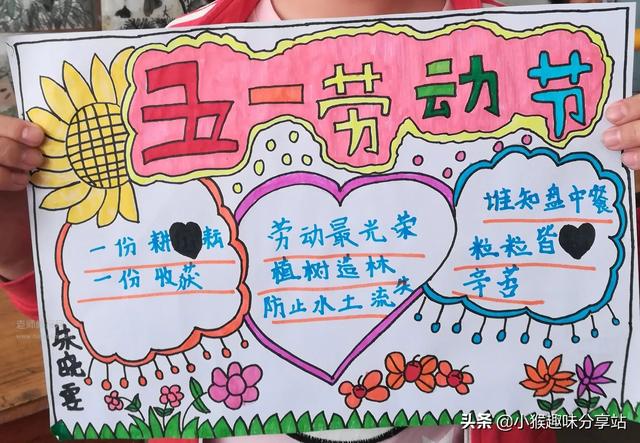 五一劳动节
一份耕耘
一份收获
劳动最光荣
植树造林
防止水土流失
谁知盘中餐
粒粒皆
辛苦
头条 @小猴趣味分享站